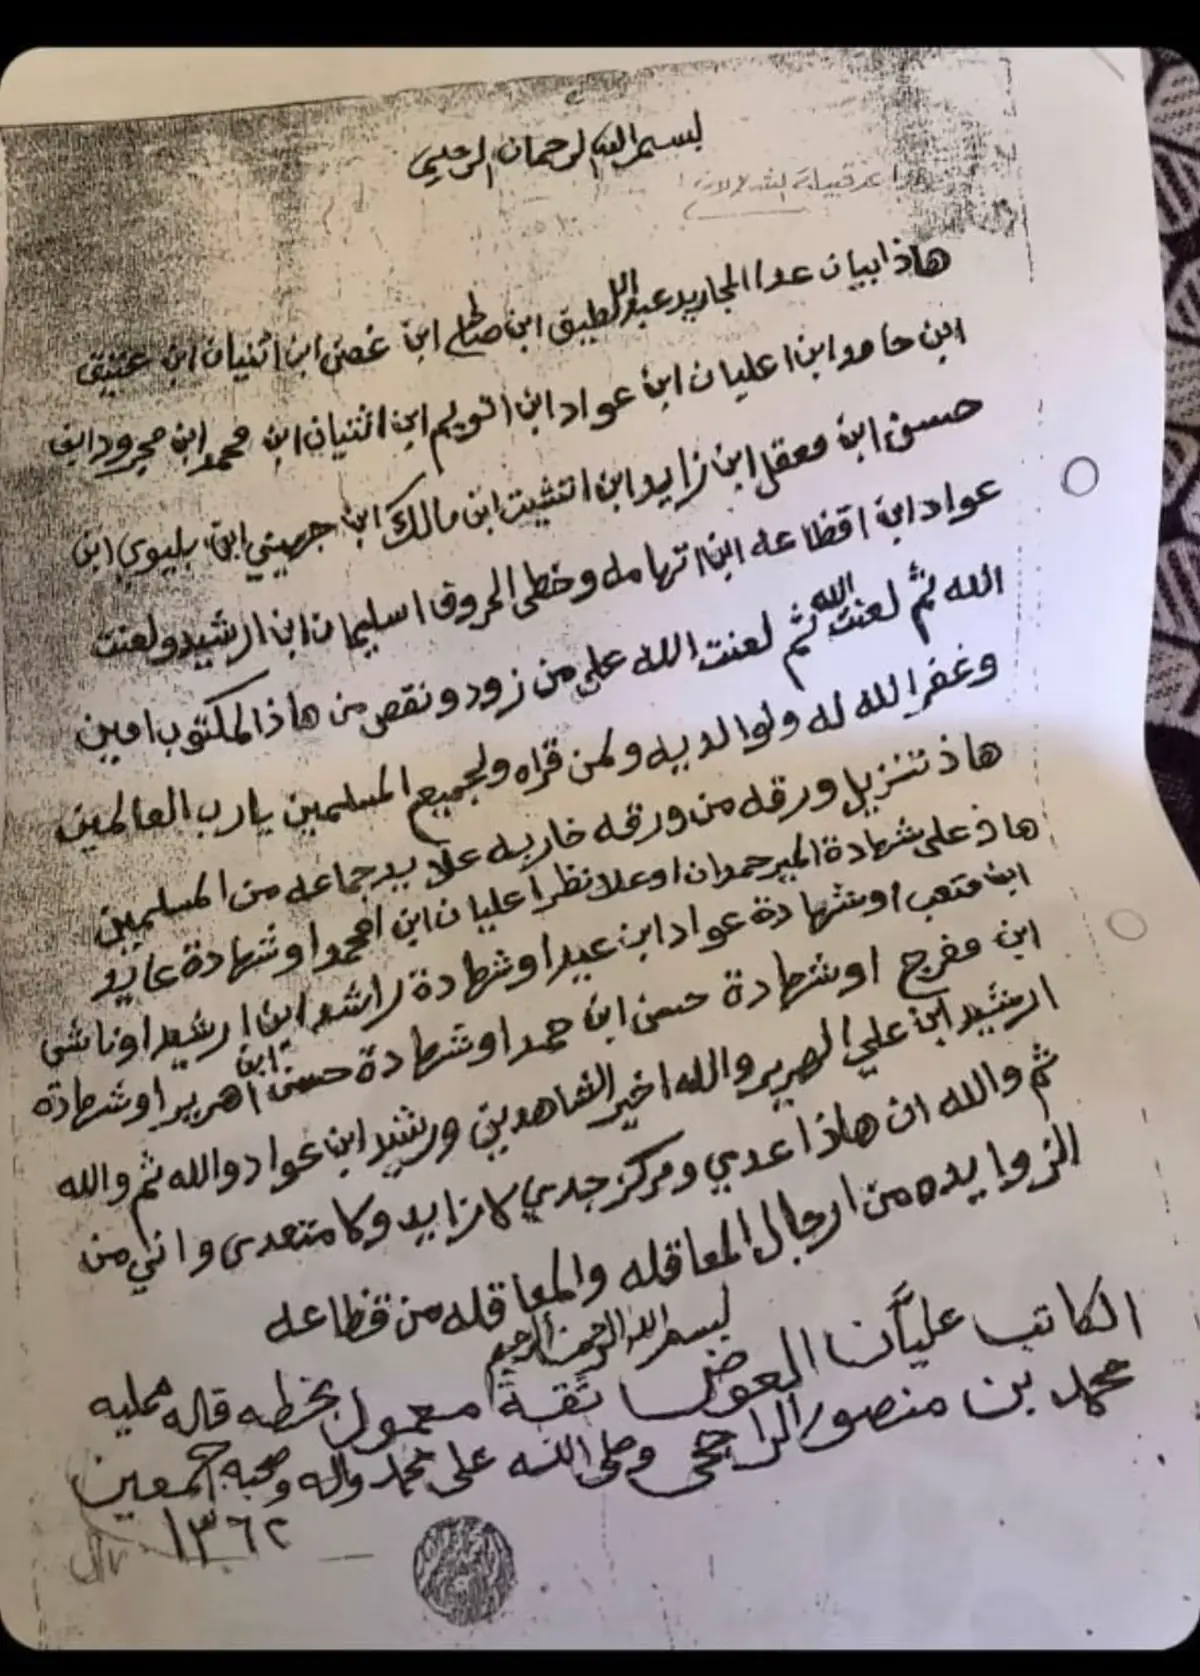 بسم الله الرحمان الرحيم
هاذا بيان عدا المجاريد عبداللطيق ابن صالح ابن غصن ابن اثنيان ابن عتيق
ابن حامد ابن اعليان ابن عواد ابن اثويم ابن اثنيان ابن محمد ابن مجرود ابن
حسن ابن معقل ابن زايد ابن اثتيت ابن مالك ابن جهيني ابن بليوي ابن
عواد ابن اقظاعه ابن اتهامه وخطى الحروف اسليمان ابن ارشيد ولعنت
الله ثم لعنت الله ثم لعنت الله على من زود ونقص من هاذ المكتوب امين
وغفر الله له ولوالديه ولمن قراه ولجميع المسلمين يارب العالمين
هاذ تنزيل ورقه من ورقه خاربه علا يد جماعه من المسلمين
هاذ على شهادة حمدان اوعلا نظر اعليان ابن امحمد اوشهادة عايد
ابن متعب اوشهادة عواد ابن عبيد اوشهادة راشد ابن ارشيد اوناشي
ابن مفرج اوشهادة حسن ابن حمد اوشهادة حسن ابن اهرير اوشهادة
ارشيد ابن علي الهرير والله اخير الشاهدين ورشيد ابن عواد والله ثم والله
ثم والله ان هاذا عدي ومركز جدي لا زايد ولا متعدى واني من
الزوايده من ارجال المعاقله والمعاقله من قظاعه
بسم الله الرحمن الرحيم
الكاتب عليَّان العوض ثقة معمول بخطه قاله ممليه
محمد بن منصور الراجحي وصلى الله على محمد واله وصحبه اجمعين
١٣٦٢